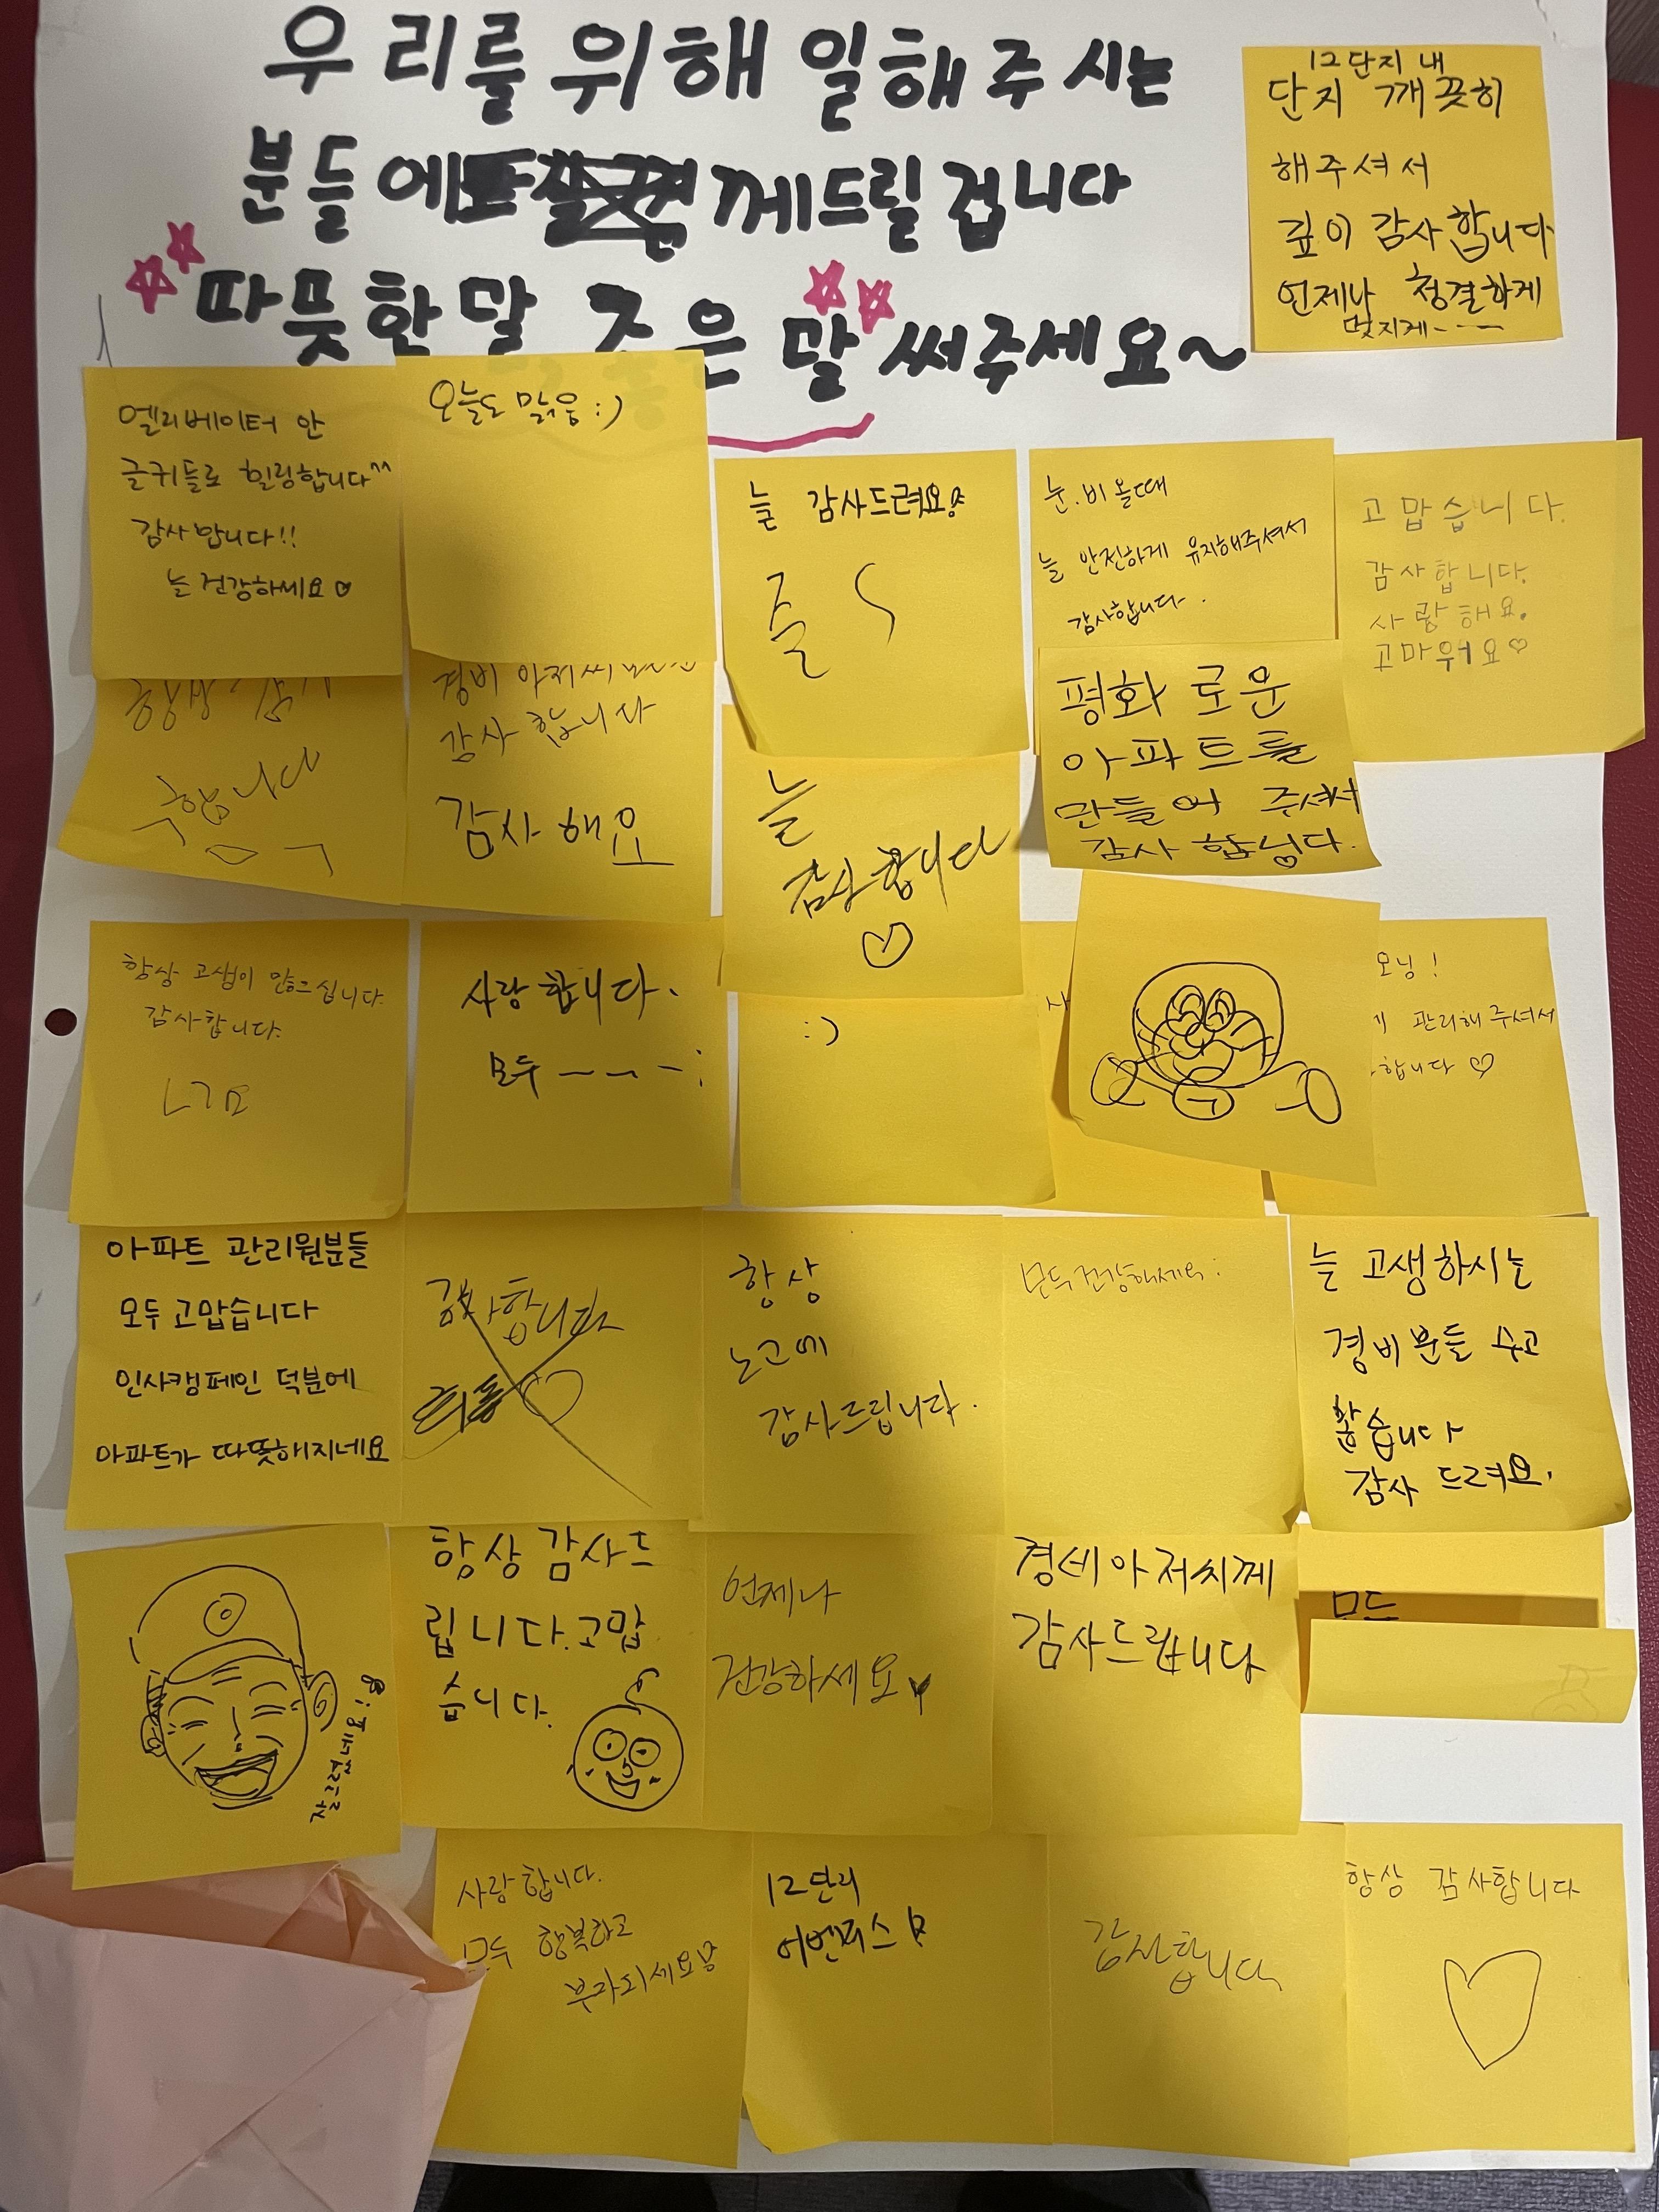 우리를 위해 일해주시는
분들 께드릴 겁니다
따뜻한 말, 좋은 말 써주세요~
12단지 내
단지 깨끗히
해주셔서
깊이 감사합니다
언제나 청결하게
멋지게----
엘리베이터 안
글귀들로 힐링합니다^^
감사합니다!!
늘 건강하세요♡
오늘도 맑음:)
늘 감사드려요
눈.비 올때
늘 안전하게 유지해주셔서
감사합니다.
고맙습니다.
감사합니다.
사랑해요.
고마워요♡
항상 감사
합니다
경비 아저씨
감사합니다
감사해요
늘
감사합니다
♡
평화로운
아파트를
만들어 주셔서
감사합니다.
항상 고생이 많으십니다.
감사합니다.
사랑합니다.
모두 ---:
:)
사
모닝!
게 관리해주셔서
합니다♡
아파트 관리원분들
모두 고맙습니다
인사캠페인 덕분에
아파트가 따뜻해지네요
감사합니다
♡
항상
노고에
감사드립니다.
모두 건강하세요:
늘 고생하시는
경비분들 수고
많습니다
감사 드려요.
항상 감사드
립니다.고맙
습니다.
언제나
건강하세요
경비아저씨께
감사드립니다
모두
사랑합니다.
모두 행복하고
부자되세요
12단지
어벤져스
감사합니다
항상 감사합니다